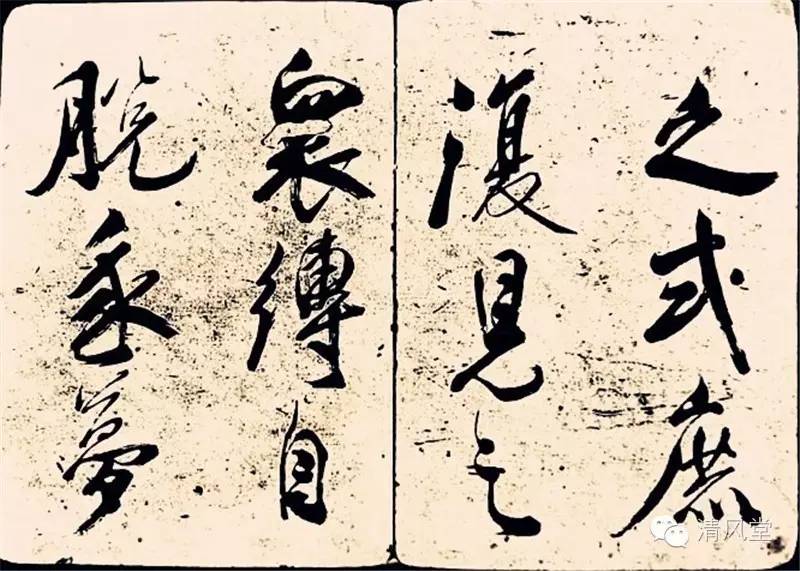 之式庶
復見之
衆縛自
脫夢
清风堂